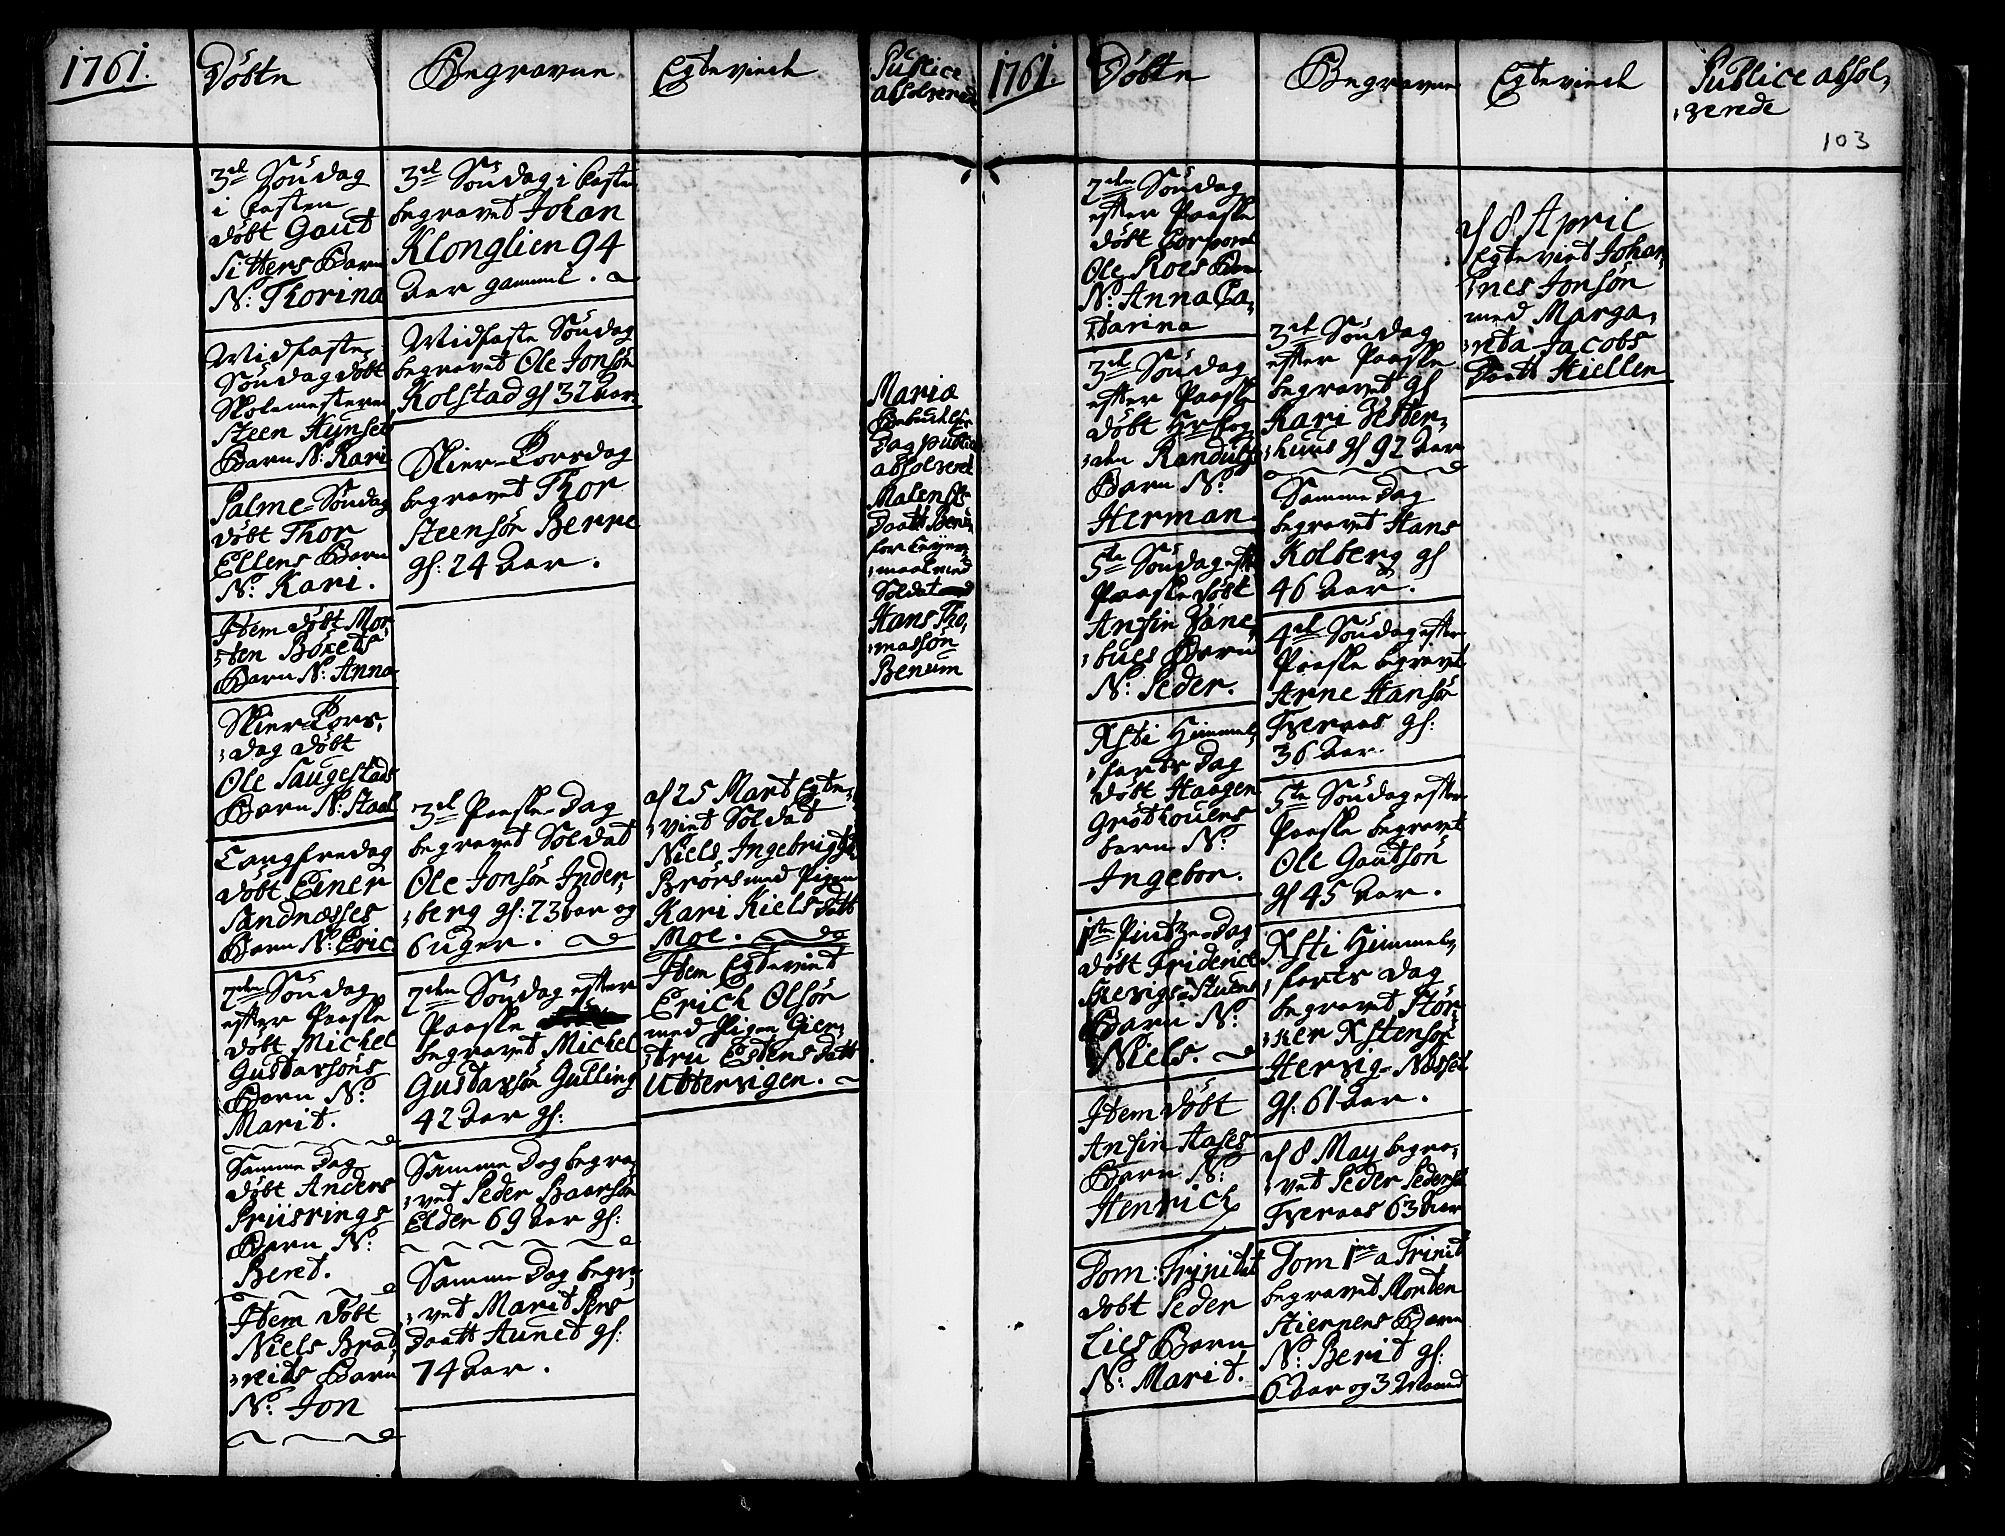 1761.
Döbte
Begravne
Egteviede
Publice
absolverede
3de Söndag
i Fasten
döbt Gaut
Sitters Barn
N: Thorina
Midfaste
Söndag döbt
Skolemesteren
Steen Hynset
Barn N: Kari
Palme-Söndag
döbt Thor
Ellens Barn
N: Kari.
Item döbt Mor
:ten Börets
Barn N: Anna
Skier Tors,
:dag döbt
Ole Saugestads
Barn N:
Langfredag
döbt Einer
Sandnæsses
Barn N: Eric
2den Söndag
efter Paaske
döbt Michel
Gustavsöns
Barn N:
Marit.
Samme Dag
döbt Anders
Priisrings
Barn N:
Beret.
Item döbt
Niels Brat,
:reids Barn
N: Jon
3de Söndag i Faste
begravet Johan
Klonglien 94
Aar gammel.
Midfaste Söndag
begravet Ole Jonsön
Kolstad gl 32 Aar
Skier-Torsdag
begravet Thor
Steensön Berre
gl: 24 Aar.
3de Paaske-Dag
begravet Soldat
Ole Jonsön Inder,
:berg gl: 23 Aar og
6 Uger.
2den Söndag efter
Paaske
begravet Michel
Gustavsön Gulling
42 Aar gl:
Samme Dag begra,
:vet Peder Haarsön
Elden 69 Aar gl:
Samme Dag begra,
:vet Marit Pers
Daatt Aunet gl:
74 Aar.
d 25 Mart Egte,
:viet Soldat
Niels Ingebrigts
Brörs med Pigen
Kari Niels Datt
Moe.
Item Egteviet
Erich Olsön
med Pigen Gier,
:tru Estens Datt
Uttervigen.
Maria
Bebudelses
Dag publice
absolveret
Malen
Daatt Benum
for Leyer,
:maal med
Soldat
Hans Tho,
:massön
Benum
1761.
Döbte
Begravne
Egteviede
Publice absol,
:verede
103
2den Söndag
efter Paaske
döbt Corporal
Ole Roes Barn
N: Anna Ca,
:tarina
3de Söndag
efter Paaske
döbt Hr Fog,
:den Randulfs
Barn N:
Herman
5te Söndag eft
Paaske döbt
Ansin Vane,
:bues Barn
N: Peder.
Xsti Himmel,
:farts Dag
döbt Haagen
Gröthouens
barn N:
Ingebor.
1ste Pintze-Dag
döbt Friderice
Hervigs-Stuens
Barn N:
Niels.
Item döbt
Ansin Aases
Barn N:
Henrich
Dom: Trinitat
döbt Peder
Lies Barn
N: Marit.
3de Söndag
efter Paaske
begravet gl
Kari Vester,
:huus gl 92 Aar
Samme Dag
begravet Hans
Kolberg gl
46 Aar.
4de Söndag efter
Paaske begravet
Arne Hansön
Tveraas gl:
36 Aar.
5te Söndag efter
Paaske begravet
Ole Gautsön
gl 45 Aar.
Xsti Himmel,
:farts Dag
begravet Stör,
:ker Xstensön
Hervig-Næsset
gl: 61 Aar.
d 8 May begra,
:vet Peder Peders
Tveraas 63 Aar
Dom 1ma a Trinit
begravet Morten
Stiernens Barn
N: Berit gl:
6 Aar og 3 Maaned
d 8 April
Egteviet Johan,
:nes Jonsön
med Marga,
:reta Jacobs
Daatt Hiellen